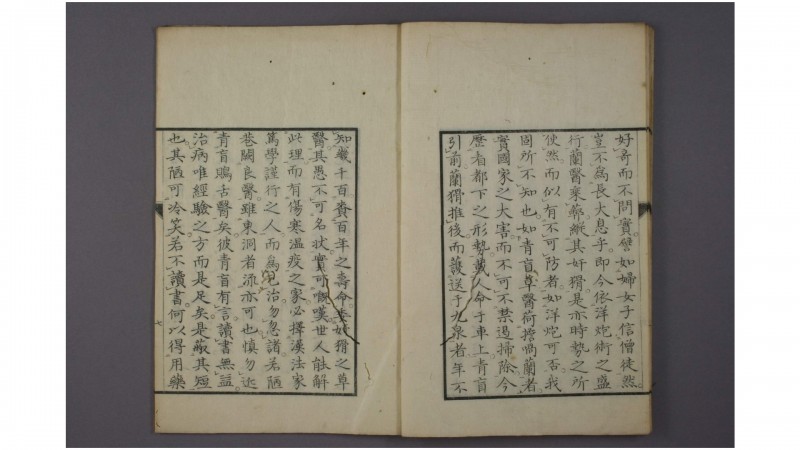 好奇而不問實譬如婦女子信僧徒然
豈不為長大息乎即今依洋炮術之盛
行蘭醫乘藉縱其奸猾是亦時勢之所
使然而似有不可防者如洋炮可否我
固所不知也如青盲草醫荷擔喎蘭者
實國家之大害而不可不禁遏掃除今
歷看都下之形勢載人命于車上青盲
引前蘭猾推後而護送于九泉者年不
知幾千百賚百年之壽命委奸猾之草
醫其愚不可名狀實可慨嘆世人能解
此理而有傷寒溫疫之家必擇漢法家
篤學謹行之人而為治勿忽諸若陋
巷闕良醫雖東洞者流亦可也慎勿近
青盲古醫矣彼青盲有言讀書無益
治病唯經驗之方而是足矣是蔽其短
也其陋可冷笑若不讀書何以得用藥
七